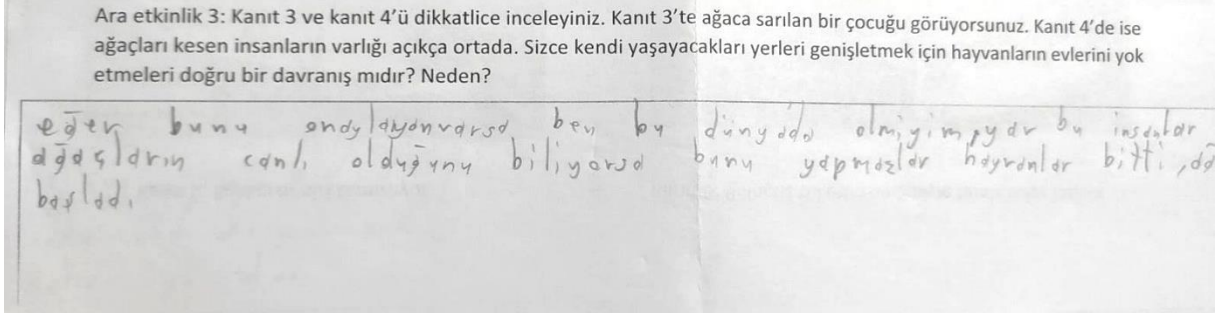 Ara etkinlik 3: Kanıt 3 ve kanıt 4’ü dikkatlice inceleyiniz. Kanıt 3’te ağaca sarılan bir çocuğu görüyorsunuz. Kanıt 4’de ise
ağaçları kesen insanların varlığı açıkça ortada. Sizce kendi yaşayacakları yerleri genişletmek için hayvanların evlerini yok
etmeleri doğru bir davranış mıdır? Neden?
eğer bunu onaylayanvarsa ben bu dünyada bu insanlar
ağaçların canlı olduğunu biliyorsa bunu yapmazlar hayvanlar bitti,
başladı